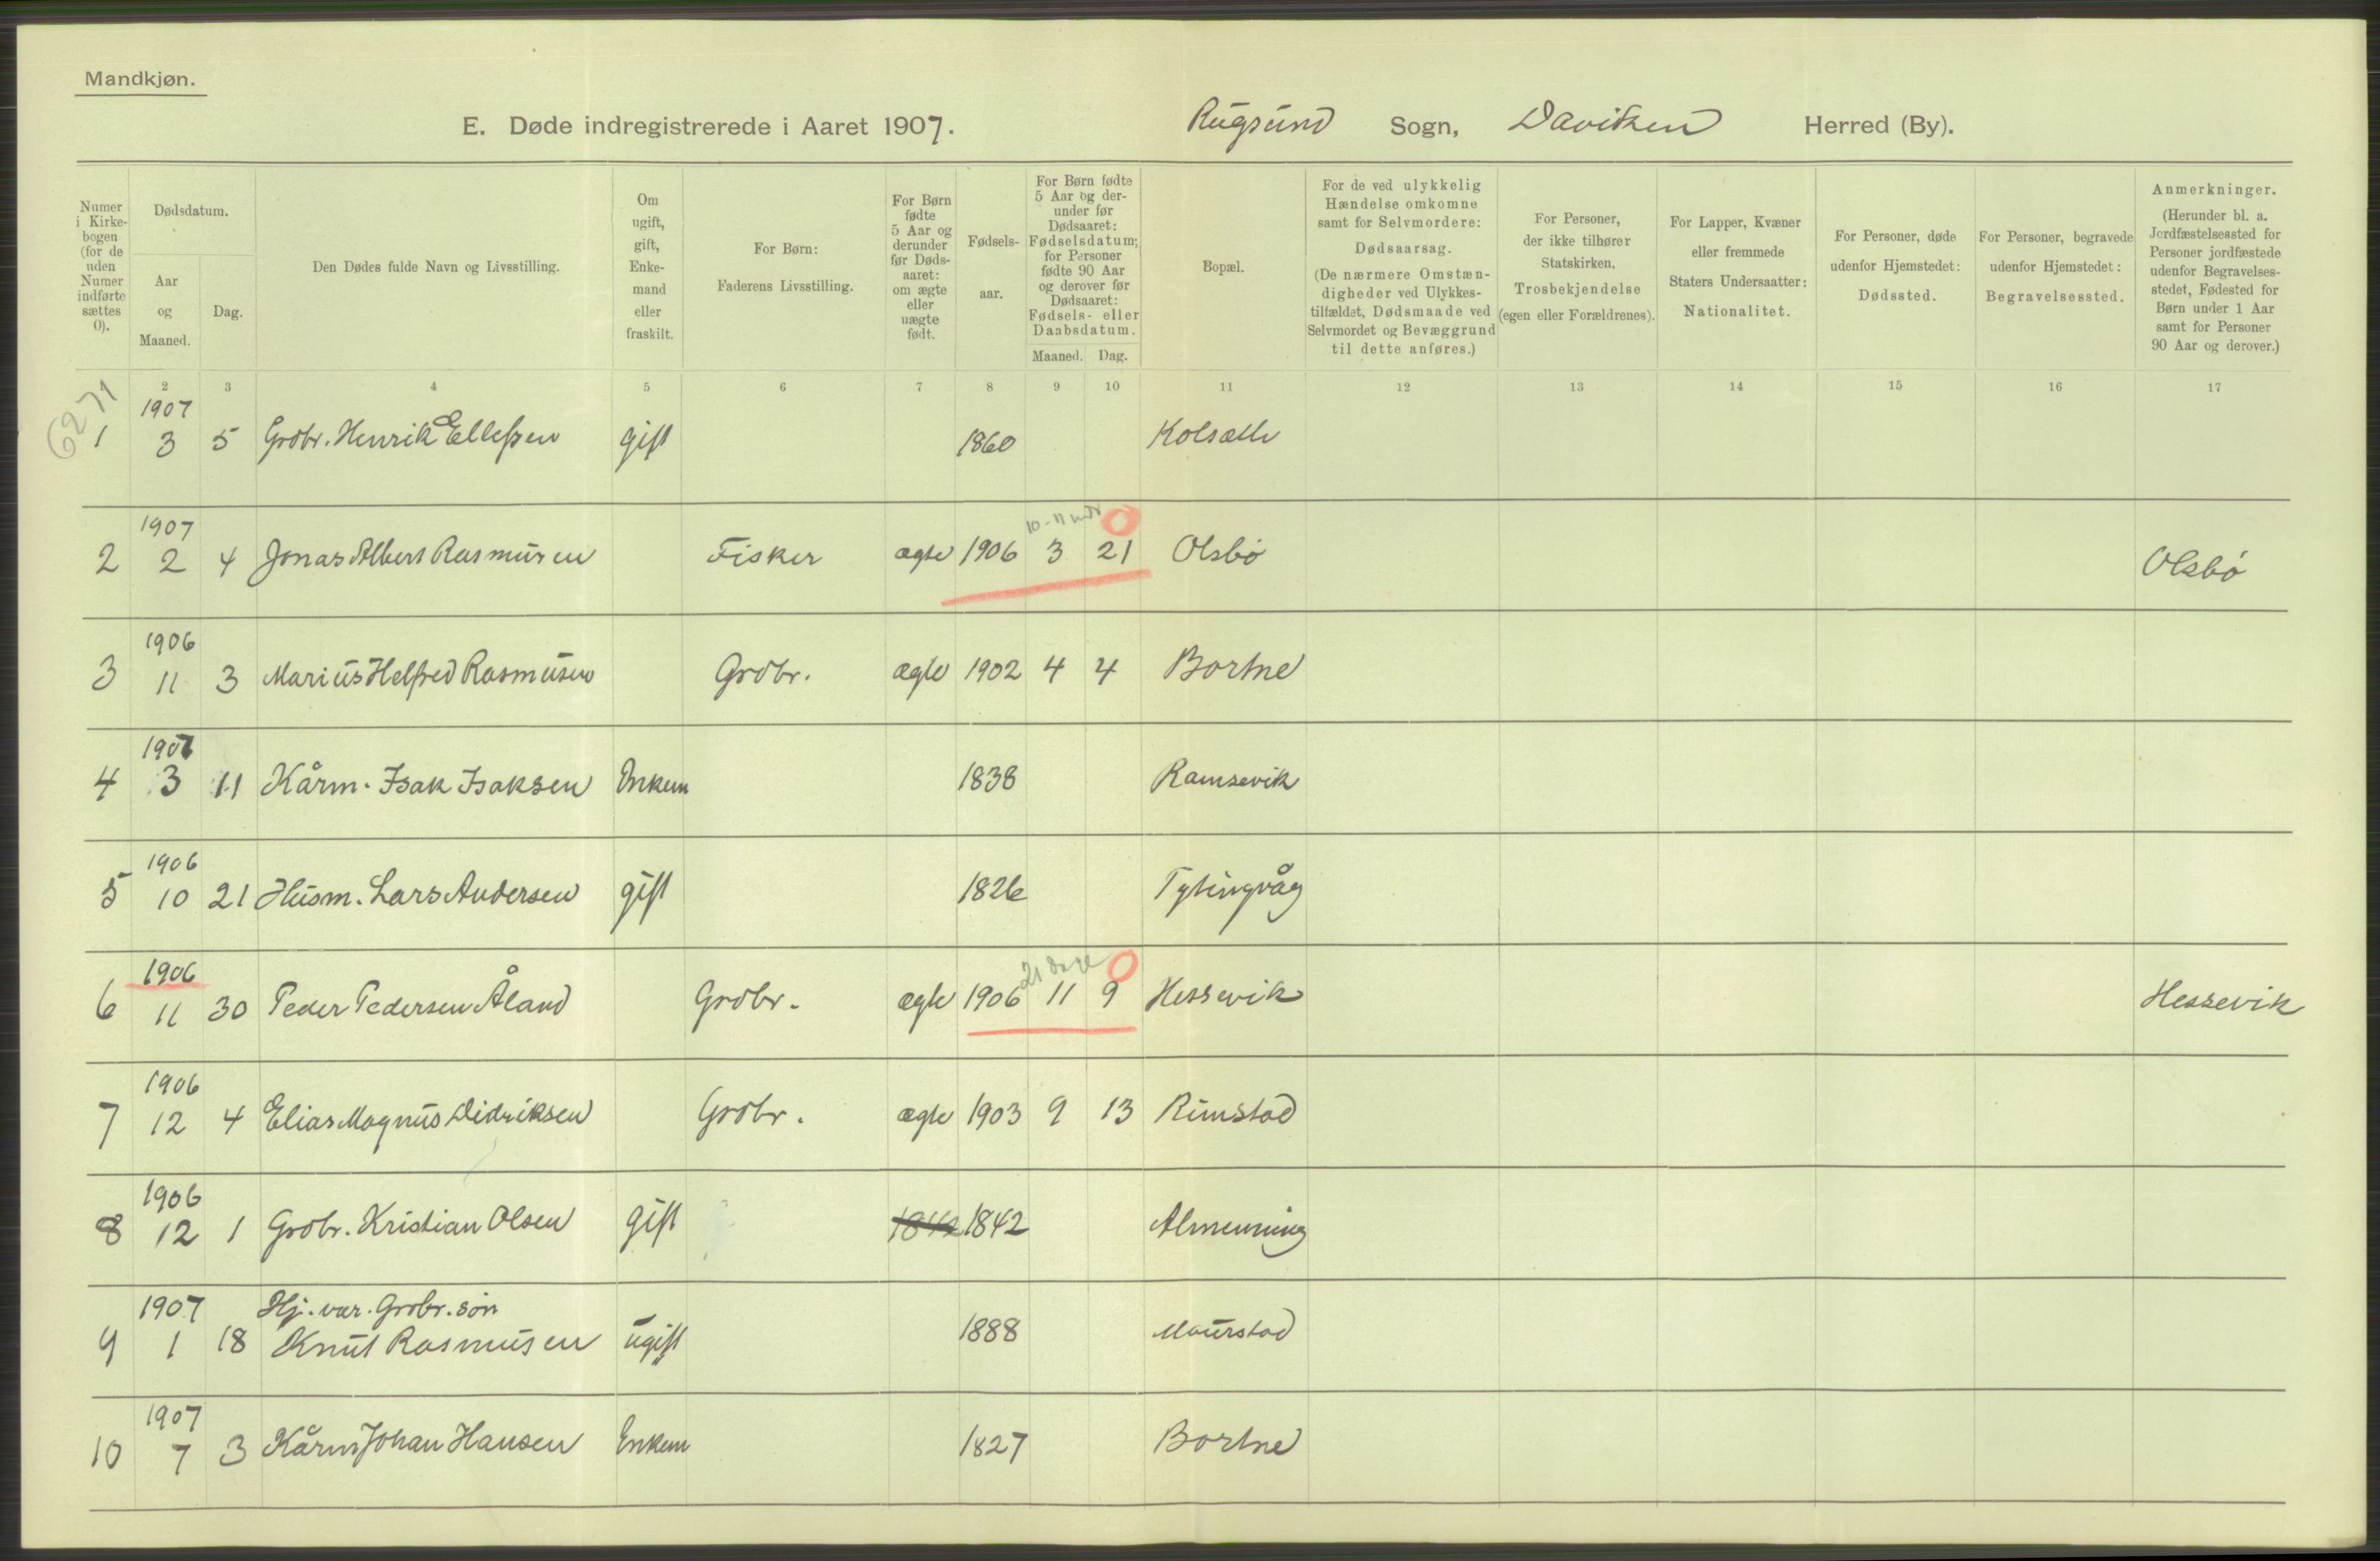 Mandkjøn.
E. Døde indregistrerede i Aaret 1907. Rugsund Sogn, Daviken Herred (By).
Numer i Kirkebogen (for de uden Numer indførte sættes 0).
Dødsdatum.
Aar og Maaned.
Dag.
Den Dødes fulde Navn og Livsstilling.
Om ugift, gift, Enkemand eller fraskilt.
For Børn: Faderens Livsstilling.
For Børn fødte 5 Aar og derunder før Dødsaaret: om ægte eller uægte født.
Fødselsaar.
For Børn fødte 5 Aar og derunder før Dødsaaret: Fødselsdatum; for Personer fødte 90 Aar og derover før Dødsaaret: Fødsels- eller Daabsdatum.
Maaned. Dag.
Bopæl.
For de ved ulykkelig Hændelse omkomne samt for Selvmordere: Dødsaarsag. (De nærmere Omstændigheder ved Ulykkestilfældet, Dødsmaade ved Selvmordet og Bevæggrund til dette anføres.)
For Personer, der ikke tilhører Statskirken, Trosbekjendelse (egen eller Forældrenes).
For Lapper, Kvæner eller fremmede Staters Undersaatter: Nationalitet.
For Personer, døde udenfor Hjemstedet: Dødssted.
For Personer, begravede udenfor Hjemstedet: Begravelsessted.
Anmerkninger. (Herunder bl. a. Jordfæstelsessted for Personer jordfæstede udenfor Begravelsesstedet, Fødested for Børn under 1 Aar samt for Personer 90 Aar og derover.)
1 2 3 4 5 6 7 8 9 10 11 12 13 14 15 16 17
6271
1907
1 3 5 Grdbr. Henrik Ellefsen gift 1860 Kolsætr
1907 10-11 mdr 0
2 2 4 Jonas Albert Rasmusen Fisker ægte 1906 3 21 Olsbø Olsbø
1906
3 11 3 Marius Helfred Rasmusen Grdbr. ægte 1902 4 4 Bortne
1907
4 3 11 Kårm. Isak Isaksen Enkem 1838 Ramsevik
1906
5 10 21 Husm. Lars Andersen gift 1826 Tytingvåg
1906 21 dage 0
6 11 30 Peder Pedersen Åland Grdbr. ægte 1906 11 9 Hessevik Hessevik
1906
7 12 4 Elias Magnus Didriksen Grdbr. ægte 1903 9 13 Rimstad
1906
8 12 1 Grdbr. Kristian Olsen gift 1842 1842 Almenning
1907 Hj. vær. Grdbr. søn
9 1 18 Knut Rasmusen ugift 1888 Maurstad
1907
10 7 3 Kårm Johan Hansen Enkem 1827 Bortne